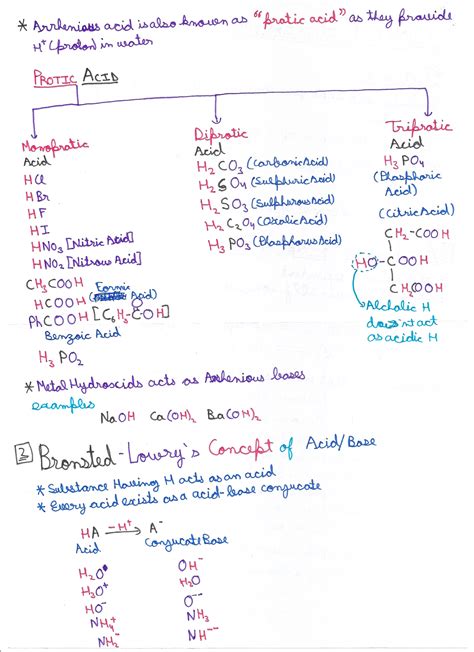 * Arrhenious acid is also known as "protic acid" as they provide
H⁺ (proton) in water
PROTIC ACID
Monoprotic
Acid
HCl
HBr
HF
HI
HNO₃ [Nitric Acid]
HNO₂ [Nitrous Acid]
CH₃COOH
HCOOH (Formic Acid)
PhCOOH [C₆H₅-COOH]
Benzoic Acid
H₃PO₂
Diprotic
Acid
H₂CO₃ (Carbonic Acid)
H₂SO₄ (Sulphuric Acid)
H₂SO₃ (Sulpherous Acid)
H₂C₂O₄ (Oxalic Acid)
H₃PO₃ (Phosphorus Acid)
Triprotic
Acid
H₃PO₄
(Phosphoric
Acid)
(Citric Acid)
CH₂-COOH
HO-C COOH
CH₂COOH
Alcholic H
doesn't act
as acidic H
* Metal Hydroxids acts as Arhenious bases
examples
NaOH Ca(OH)₂ Ba(OH)₂
2 Bronsted-Lowry's Concept of Acid/Base
* Substance Having H acts as an acid
* Every acid exists as a acid-base conjucate
HA -H⁺→ A⁻
Acid Conjucate Base
H₂O OH⁻
H₃O⁺ H₂O
HO⁻ O⁻⁻
NH₄⁺ NH₃
NH₂⁻ NH⁻⁻